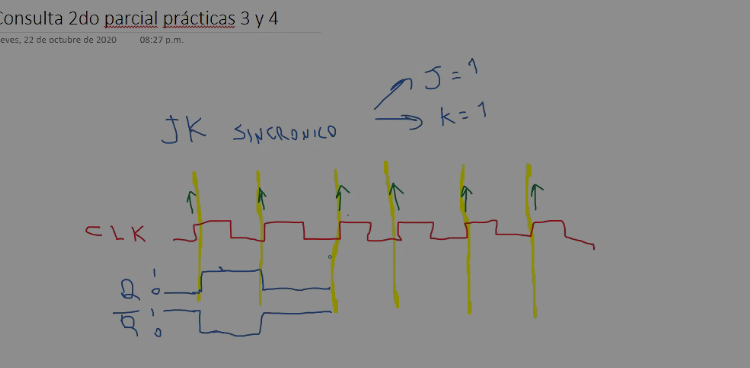 Consulta 2do parcial prácticas 3 y 4
eves, 22 de octubre de 2020 08:27 p.m.
J = 1
JK SINCRONICO
K = 1
CLK
1
Q 0
Q̅ 1
0